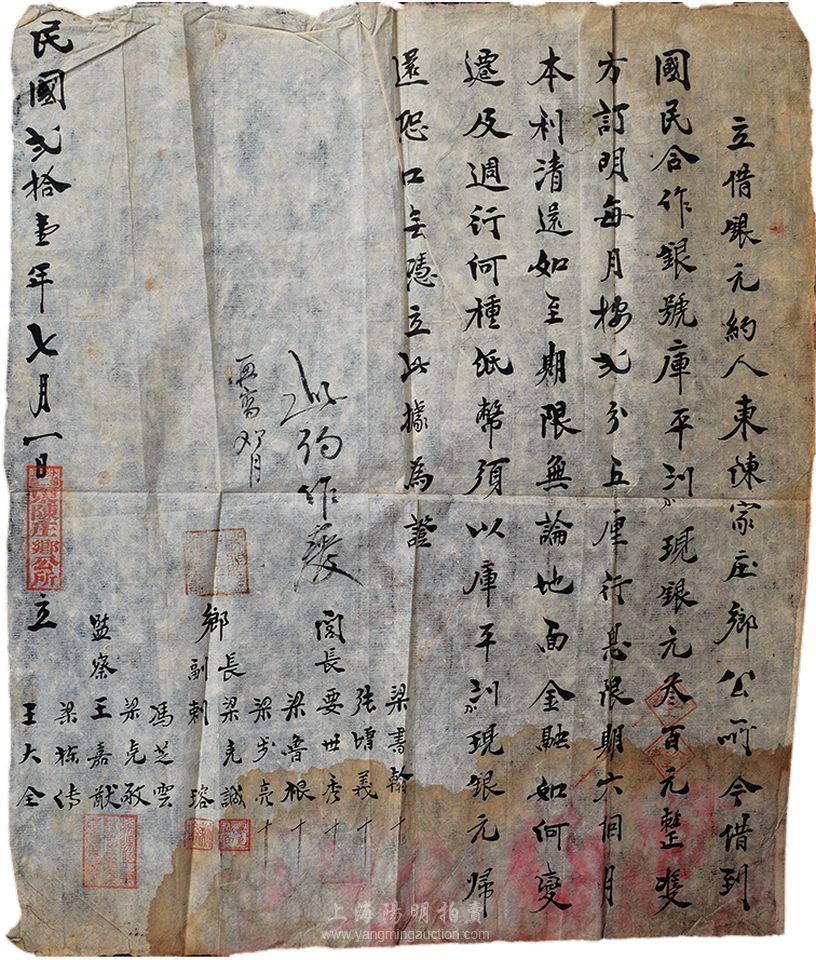 立借銀元約人東陳家庄鄉公所今借到
國民合作銀號庫平現銀元叁百元整雙
方訂明每月按弍分五厘行息限期六個月
本利清還如至期限無論地面金融如何變
遷及週行何種紙幣須以庫平現銀元歸
還恐口無憑立此據為證
此約作廢
梁書翰十
張增義十
閭長要世秀十
梁魯根十
梁步亮十
鄉長梁克誠
副刺瑢
馮芝雲
梁克敬
監察王嘉猷
梁棟
王大全
民國弍拾壹年七月一日立
陳庄鄉公所
上海陽明拍賣
www.yangmingauction.com